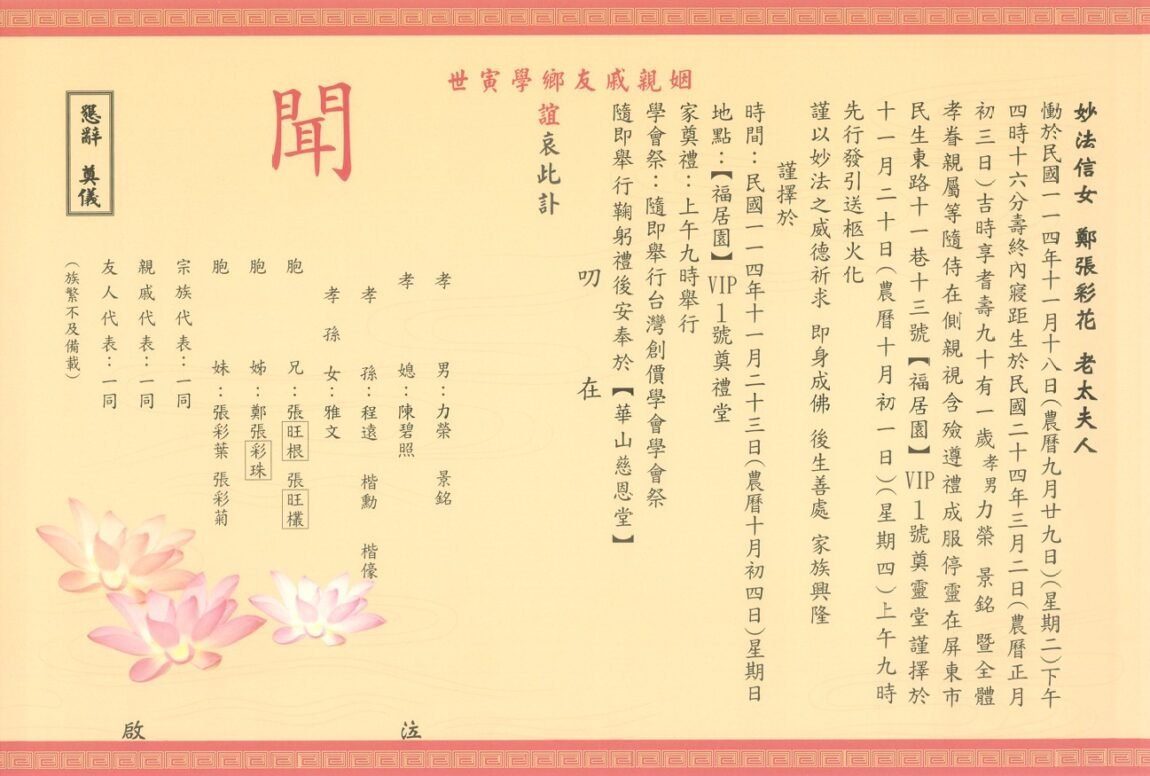 妙法信女　鄭張彩花　老太夫人
慟於民國一一四年十一月十八日(農曆九月廿九日)(星期二)下午
四時十六分壽終內寢距生於民國二十四年三月二日(農曆正月
初三日)吉時享耆壽九十有一歲孝男力榮　景銘　暨全體
孝眷親屬等隨侍在側親視含殮遵禮成服停靈在屏東市
民生東路十一巷十三號【福居園】VIP1號奠靈堂謹擇於
十一月二十日(農曆十月初一日)(星期四)上午九時
先行發引送柩火化
謹以妙法之威德祈求　即身成佛　後生善處　家族興隆
謹擇於
時間：民國一一四年十一月二十三日(農曆十月初四日)星期日
地點：【福居園】VIP1號奠禮堂
家奠禮：上午九時舉行
學會祭：隨即舉行台灣創價學會學會祭
隨即舉行鞠躬禮後安奉於【華山慈恩堂】
叨　在
姻親戚友鄉學寅世
誼哀此訃
聞
孝　男：力榮　景銘
孝　媳：陳碧照
孝　孫：程遠　楷勳　楷儫
孝孫女：雅文
胞　兄：張旺根　張旺欉
胞　姊：鄭張彩珠
胞　妹：張彩葉　張彩菊
宗族代表：一同
親戚代表：一同
友人代表：一同
(族繁不及備載)
泣　啟
懇辭　奠儀